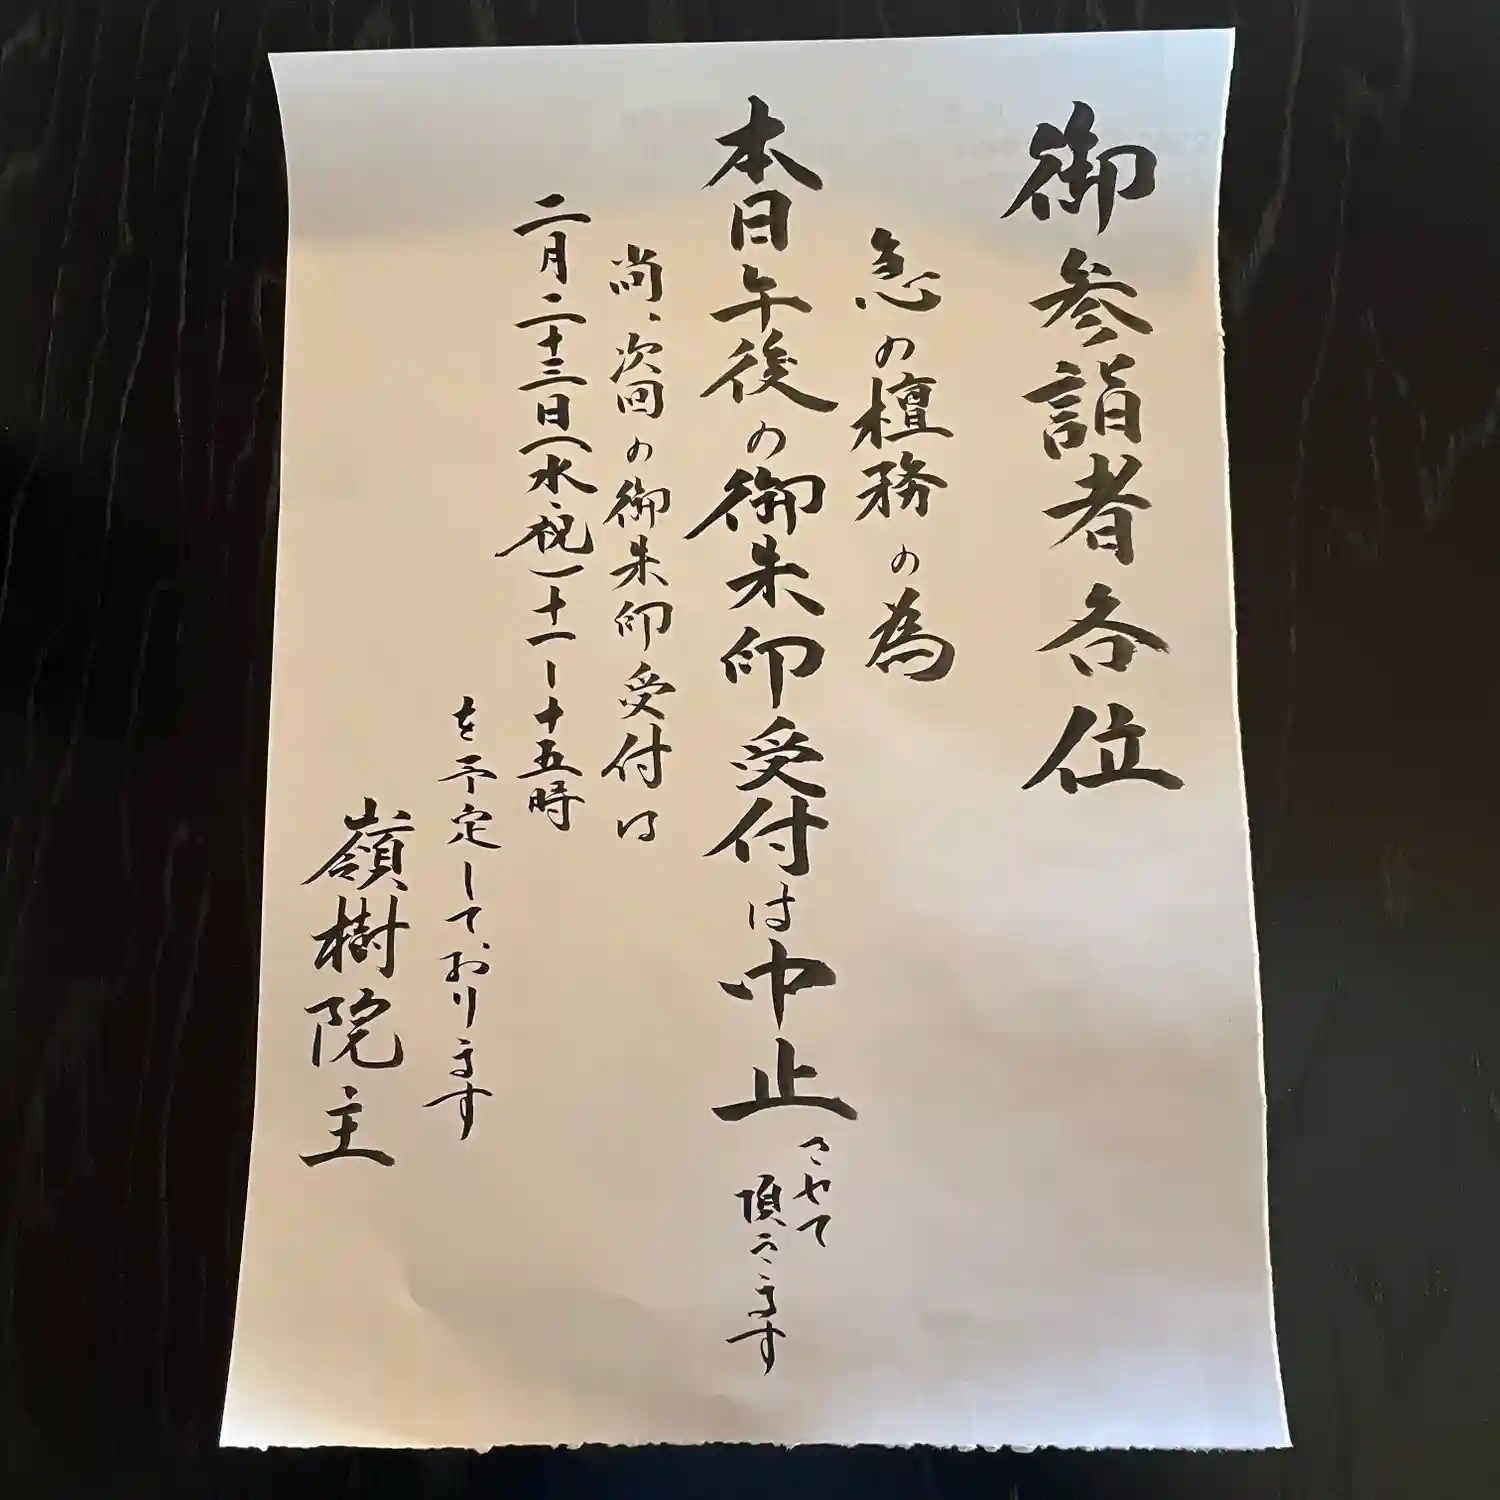 御参詣者各位
急の檀務の為
本日午後の御朱印受付は中止させて
頂きます
尚、次回の御朱印受付は
二月二十三日(水・祝)十一〜十五時
を予定しております
嶺樹院主